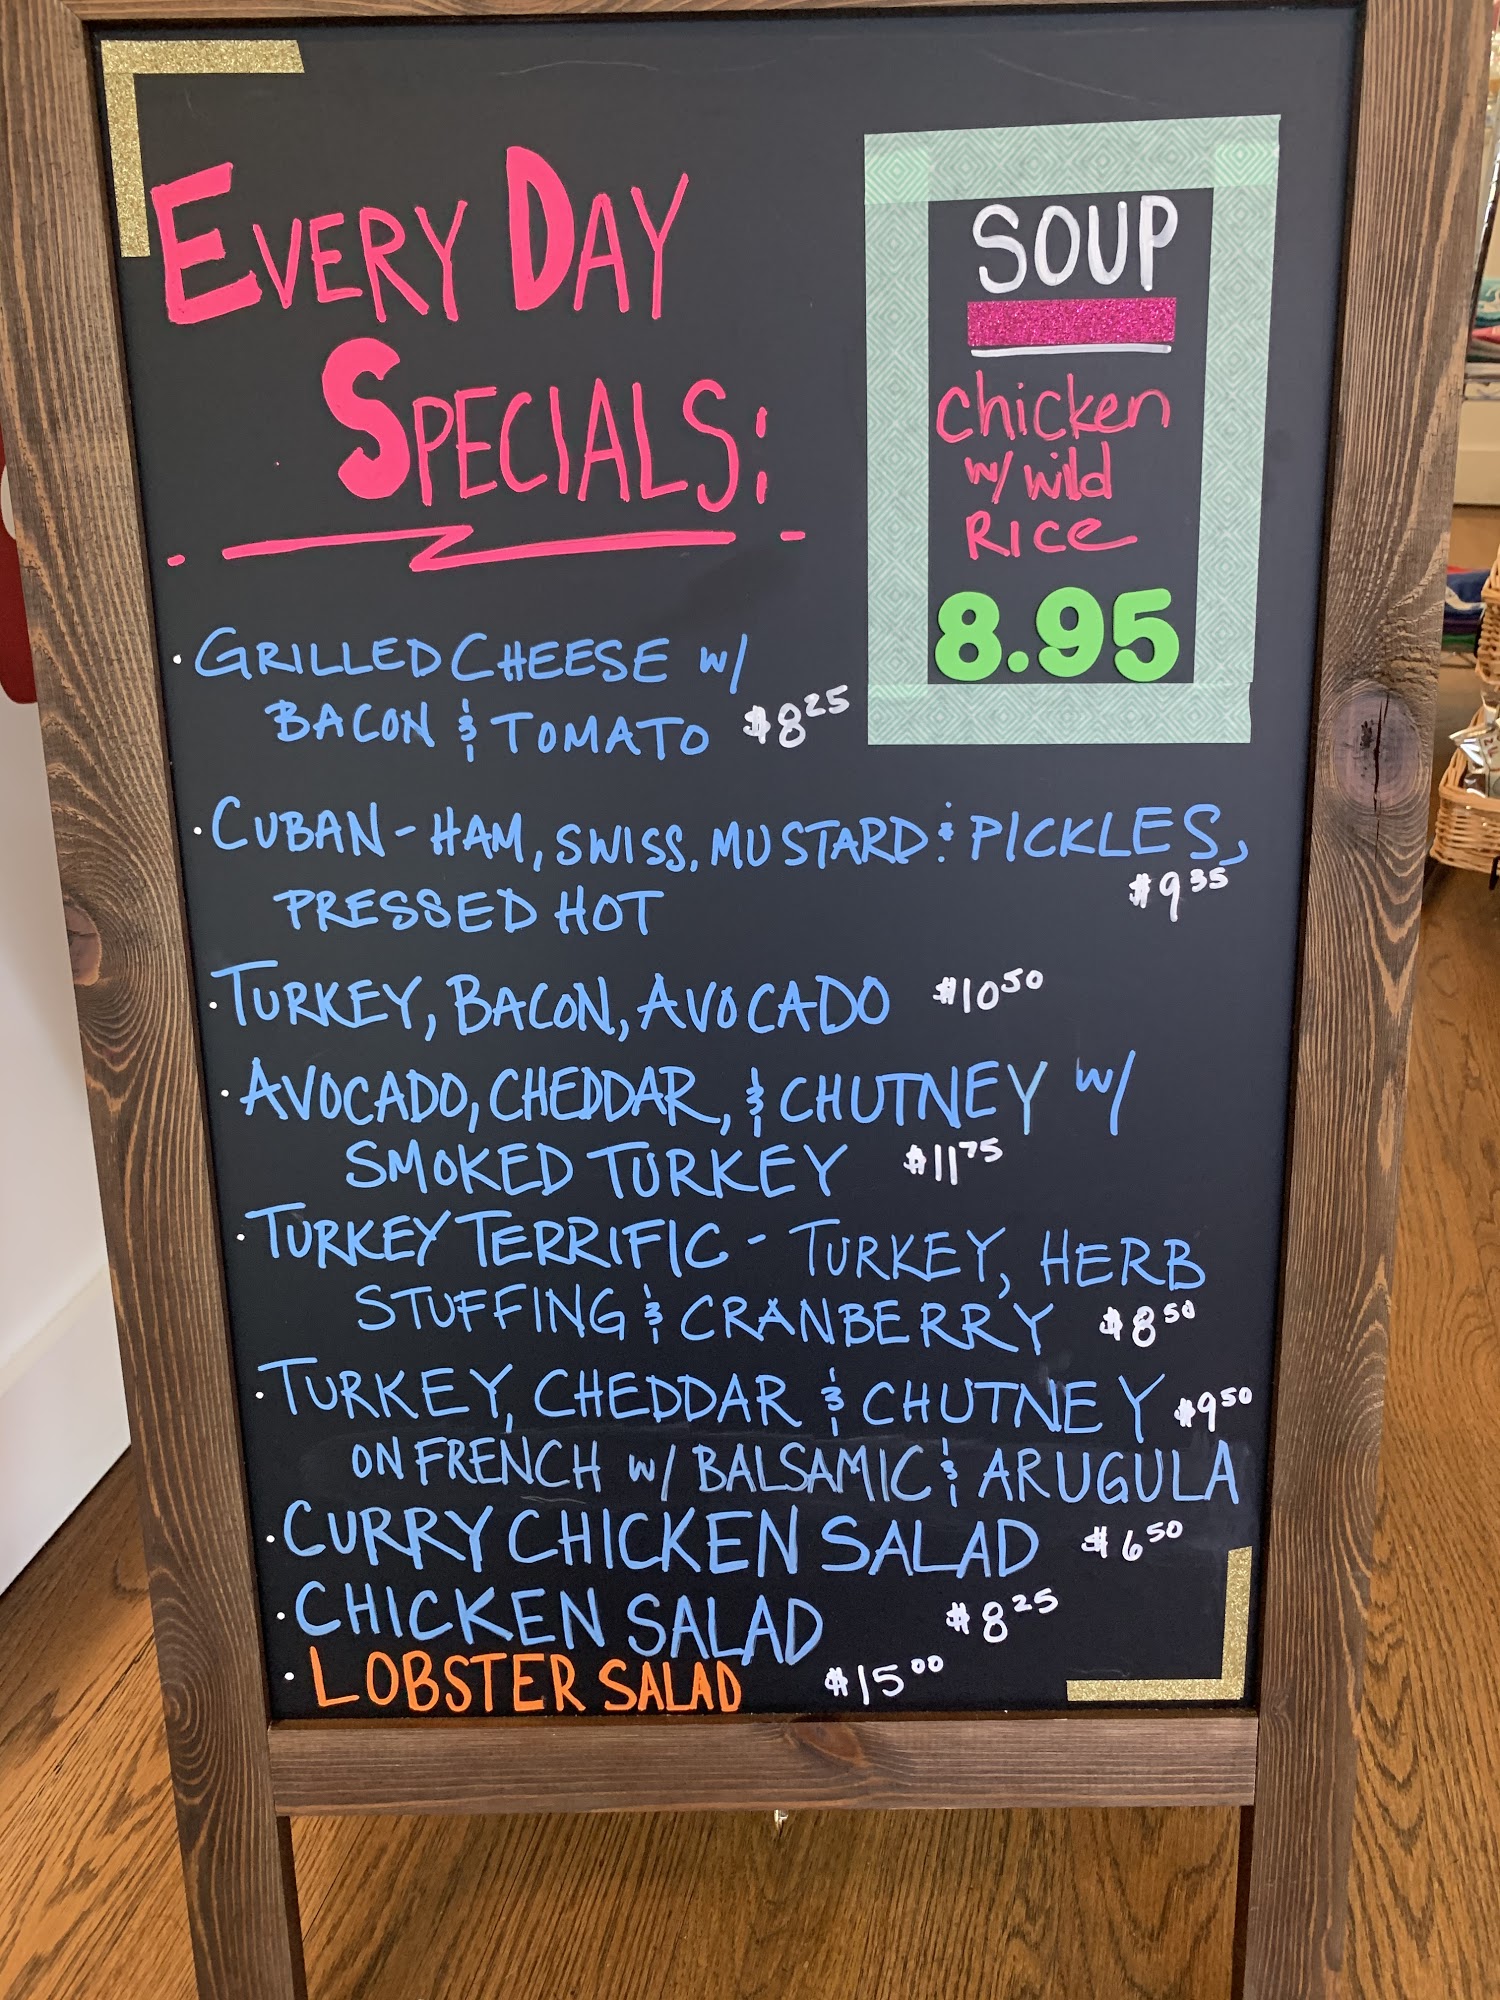 EVERY DAY
SPECIALS:
SOUP
Chicken
w/ wild
RICE
8.95
· GRILLED CHEESE w/
BACON & TOMATO $8.25
· CUBAN - HAM, SWISS, MUSTARD & PICKLES,
PRESSED HOT $9.35
· TURKEY, BACON, AVOCADO $10.50
· AVOCADO, CHEDDAR, & CHUTNEY w/
SMOKED TURKEY $11.75
· TURKEY TERRIFIC - TURKEY, HERB
STUFFING & CRANBERRY $8.50
· TURKEY, CHEDDAR & CHUTNEY $9.50
ON FRENCH w/ BALSAMIC & ARUGULA
· CURRY CHICKEN SALAD $6.50
· CHICKEN SALAD $8.25
· LOBSTER SALAD $15.00